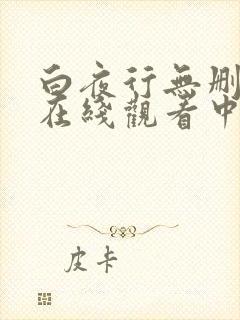 白夜行無删
在綫觀看中
皮卡